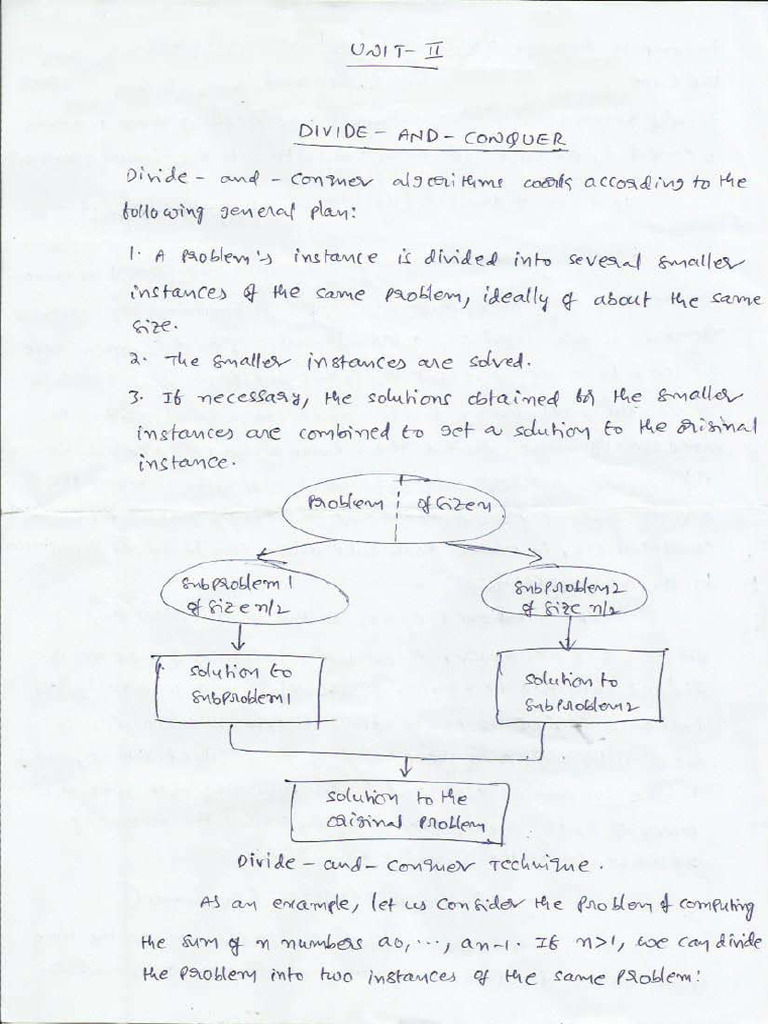 UNIT-II
DIVIDE-AND-CONQUER
Divide-and-Conquer algorithms work according to the
following general plan:
1. A Problem's instance is divided into several smaller
instances of the same problem, ideally of about the same
size.
2. The smaller instances are solved.
3. If necessary, the solutions obtained for the smaller
instances are combined to get a solution to the original
instance.
Problem of size n
Subproblem 1
of size n/2
Subproblem 2
of size n/2
Solution to
Subproblem 1
Solution to
Subproblem 2
Solution to the
original problem
Divide-and-Conquer Technique.
As an example, let us consider the problem of computing
the sum of n numbers a0, ..., an-1. If n>1, we can divide
the problem into two instances of the same problem: